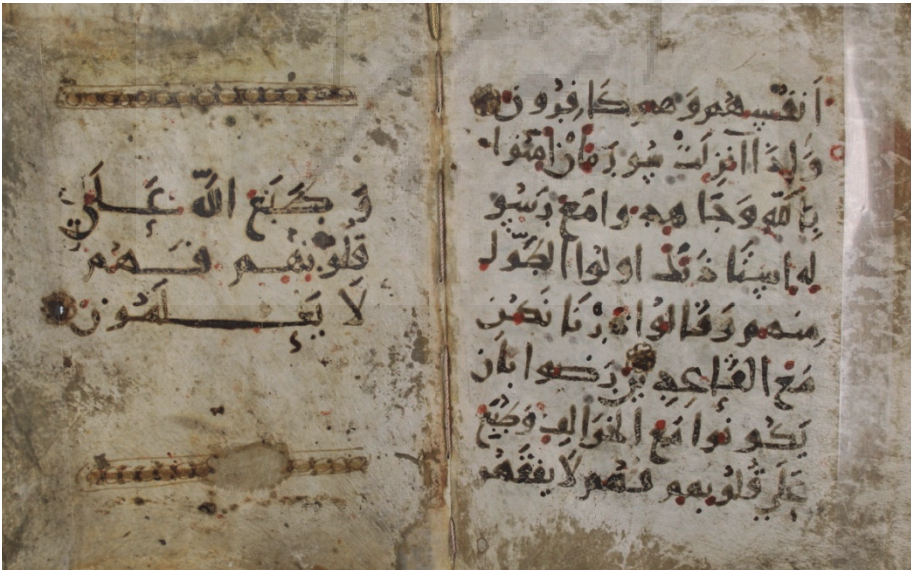 أَنفُسِهِم وَهُم كَافِرُونَ
وَإِذَا أُنزِلَت سُورَةٌ أَن آمِنُوا
بِاللَّهِ وَجَاهِدُوا مَعَ رَسُو
لِهِ استَأذَنَكَ أُولُوا الطَّولِ
مِنهُم وَقَالُوا ذَرنَا نَكُن
مَعَ القَاعِدِينَ رَضُوا بِأَن
يَكُونُوا مَعَ الخَوَالِفِ وَطُبِعَ
عَلَى قُلُوبِهِم فَهُم لَا يَفقَهُونَ
وَطَبَعَ اللَّهُ عَلَى
قُلُوبِهِم فَهُم
لَا يَعلَمُونَ